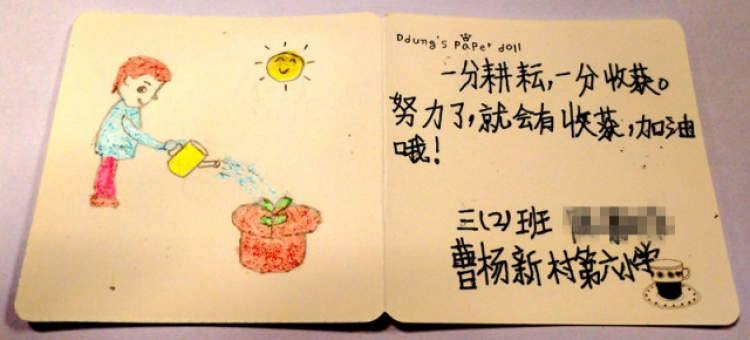 Ddung's paper doll
一分耕耘,一分收获。
努力了,就会有收获,加油
哦!
三(2)班
曹杨新村第六小学